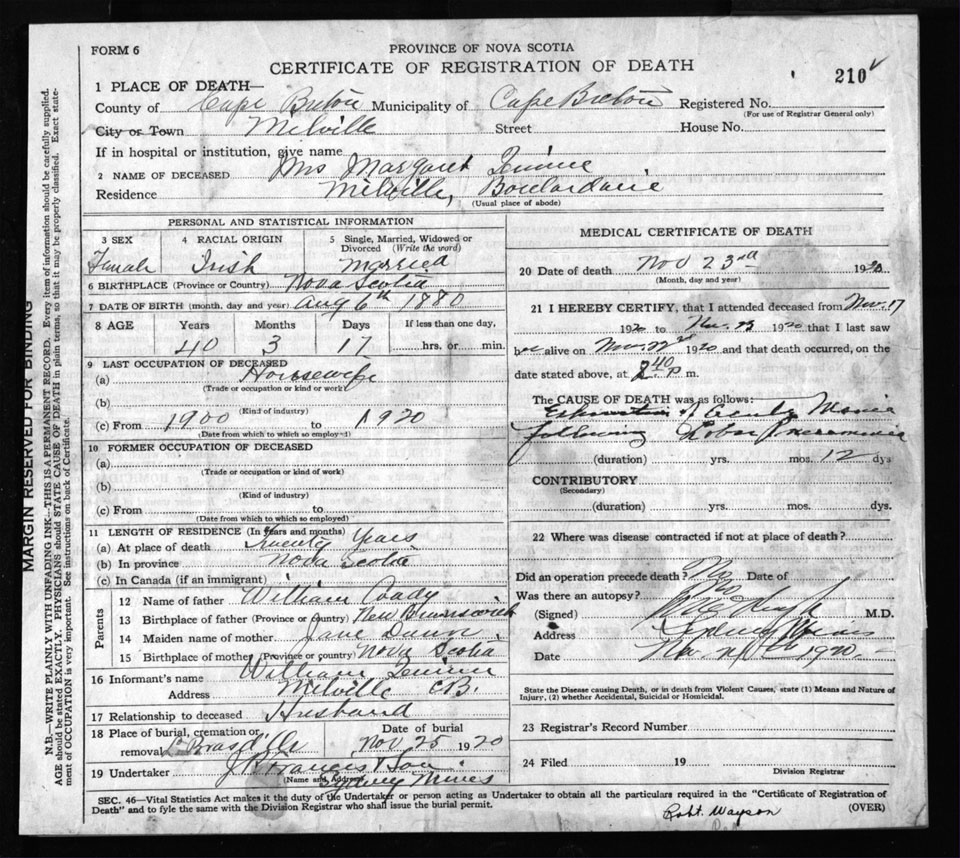 FORM 6
PROVINCE OF NOVA SCOTIA
CERTIFICATE OF REGISTRATION OF DEATH
210
1 PLACE OF DEATH—
County of Cape Breton Municipality of Cape Breton Registered No.
(For use of Registrar General only)
City or Town Milville Street House No.
If in hospital or institution, give name
2 NAME OF DECEASED Mrs Margaret
Residence Milville, Boulardarie
(Usual place of abode)
PERSONAL AND STATISTICAL INFORMATION
3 SEX 4 RACIAL ORIGIN 5 Single, Married, Widowed or Divorced (Write the word)
Female Irish Married
6 BIRTHPLACE (Province or Country) Nova Scotia
7 DATE OF BIRTH (month, day and year) Aug 6th 1880
8 AGE Years Months Days If less than one day,
40 3 17 hrs. or min.
9 LAST OCCUPATION OF DECEASED
(a) Housewife
(Trade or occupation or kind or work)
(b)
(Kind of industry)
(c) From 1900 to 1920
(Date from which to which so employed)
10 FORMER OCCUPATION OF DECEASED
(a)
(Trade or occupation or kind of work)
(b)
(Kind of industry)
(c) From to
(Date from which to which so employed)
11 LENGTH OF RESIDENCE (In years and months)
(a) At place of death Twenty Years
(b) In province Nova Scotia
(c) In Canada (if an immigrant)
Parents
12 Name of father William Coady
13 Birthplace of father (Province or country) New Brunswick
14 Maiden name of mother Jane Dunn
15 Birthplace of mother (Province or country) Nova Scotia
16 Informant's name William
Address Milville CB.
17 Relationship to deceased Husband
18 Place of burial, cremation or removal Date of burial
Nov 25 1920
19 Undertaker J Francis & Son
(Name and Address) Sydney Mines
MEDICAL CERTIFICATE OF DEATH
20 Date of death Nov 23rd 1920
(Month, day and year)
21 I HEREBY CERTIFY, that I attended deceased from Nov. 17
1920 to Nov. 23 1920 that I last saw
her alive on Nov. 22nd 1920 and that death occurred, on the
date stated above, at 2 40 P m.
The CAUSE OF DEATH was as follows:
Exhaustion of Acute Mania
following Lobar Pneumonia
(duration) yrs. mos. 12 dys
CONTRIBUTORY
(Secondary)
(duration) yrs. mos. dys.
22 Where was disease contracted if not at place of death?
Did an operation precede death? No Date of
Was there an autopsy? No
(Signed) M.D.
Address Sydney Mines
Date Nov. 1920.
State the Disease causing Death, or in death from Violent Causes, state (1) Means and Nature of
Injury, (2) whether Accidental, Suicidal or Homicidal.
23 Registrar's Record Number
24 Filed 19
Division Registrar
SEC. 46—Vital Statistics Act makes it the duty of the Undertaker or person acting as Undertaker to obtain all the particulars required in the "Certificate of Registration of
Death" and to fyle the same with the Division Registrar who shall issue the burial permit.
(OVER)
Robt. Wayson
MARGIN RESERVED FOR BINDING
N.B.—WRITE PLAINLY WITH UNFADING INK—THIS IS A PERMANENT RECORD. Every item of information should be carefully supplied.
AGE should be stated EXACTLY. PHYSICIANS should STATE CAUSE OF DEATH in plain terms, so that it may be properly classified. Exact state-
ment of OCCUPATION is very important. See instructions on back of Certificate.